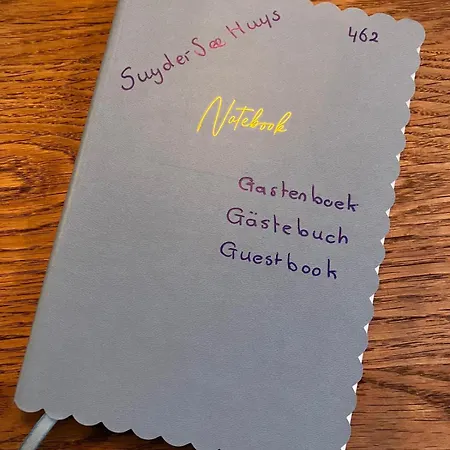 Suyder See Huys
462
Notebook
Gastenboek
Gästebuch
Guestbook